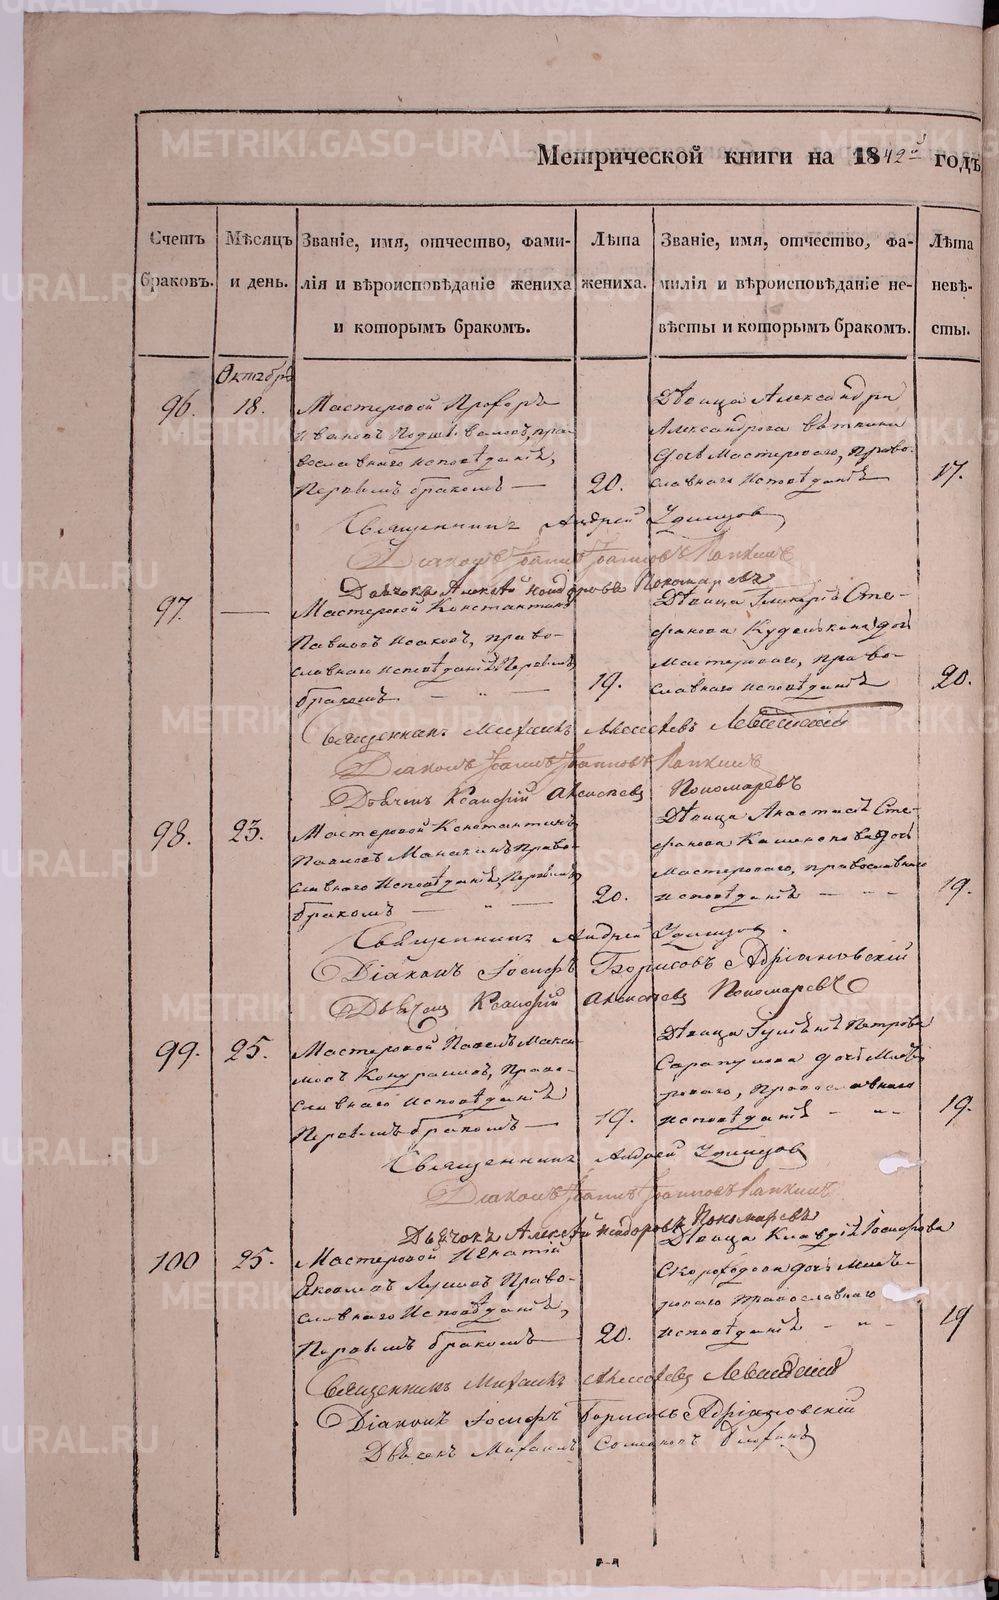 Метрической книги на 1842й годъ
Счетъ браковъ.
Мѣсяцъ и день.
Званіе, имя, отчество, фами-
лія и вѣроисповѣданіе жениха
и которымъ бракомъ.
Лѣта жениха.
Званіе, имя, отчество, фа-
милія и вѣроисповѣданіе не-
вѣсты и которымъ бракомъ.
Лѣта невѣ-
сты.
Октябрь
96.
18.
Мастеровой Прохоръ
Ивановъ Подшиваловъ, пра-
вославнаго исповѣданія,
Первымъ бракомъ —
20.
Дѣвица Александра
Александрова Вяткина
дочь Мастероваго, Право-
славнаго Исповѣданія
17.
Священникъ Андрей Удинцов
Діаконъ Іоаннъ Іоанновъ Ляпкинъ
Дьячокъ Алексѣй Исидоровъ Пономаревъ
97.
—
Мастеровой Константинъ
Павловъ Исаковъ, право-
славнаго исповѣданія Первымъ
бракомъ — „ —
19.
Дѣвица Гликерія Сте-
фанова Куделькина дочь
Мастероваго, право-
славнаго исповѣданія
20.
Священникъ Михаилъ Алексѣевъ Левитскій
Діаконъ Іоаннъ Іоанновъ Ляпкинъ
Дьячекъ Ксанофій Алексѣевъ Пономаревъ
98.
23.
Мастеровой Константинъ
Павловъ Манакинъ Право-
славнаго Исповѣданія, Первымъ
бракомъ — „ —
20.
Дѣвица Анастасія Сте-
фанова дочь
Мастероваго, православнаго
исповѣданія — „ —
19.
Священникъ Андрей Удинцов.
Діаконъ Іосифъ Борисовъ Адріановскій
Дьячекъ Ксанофій Алексѣевъ Пономаревъ
99.
25.
Мастеровой Павелъ Макси-
мовъ Кондрашовъ, Право-
славнаго Исповѣданія
Первымъ бракомъ —
19.
Дѣвица Іуліанія Петрова
Сарапулова дочь Масте-
роваго, Православнаго
исповѣданія — „ —
19.
Священникъ Андрей Удинцов
Діаконъ Іоаннъ Іоанновъ Ляпкинъ
Дьячокъ Алексѣй Исидоровъ Пономаревъ
100
25.
Мастеровой Игнатій
Яковлевъ Право-
славнаго Исповѣданія,
Первымъ бракомъ —
20.
Дѣвица Клавдія Іосифова
Скороходова дочь Масте-
роваго Православнаго
исповѣданія — „ —
19
Священникъ Михаилъ Алексѣевъ Левитскій
Діаконъ Іосифъ Борисовъ Адріановскій
Дьячекъ Михаилъ Семеновъ
METRIKI.GASO-URAL.RU